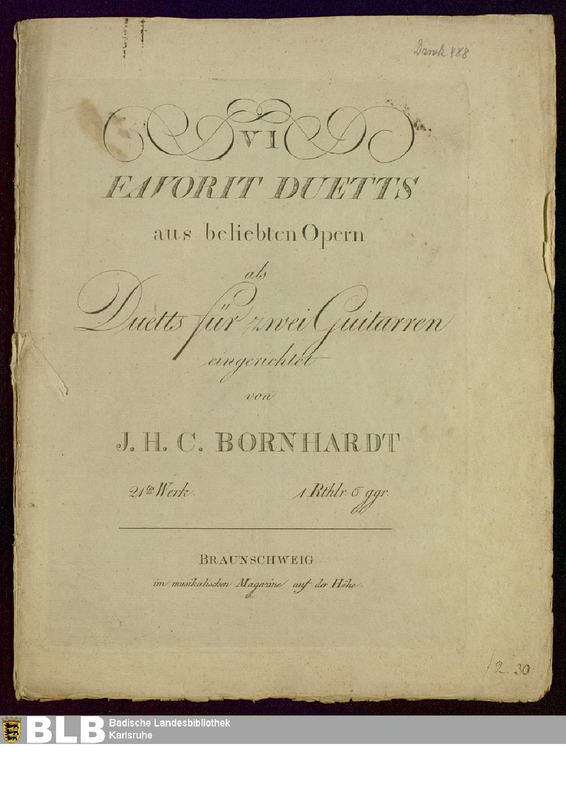 Druck 488
VI
FAVORIT DUETTS
aus beliebten Opern
als
Duetts für zwei Guitarren
eingerichtet
von
J. H. C. BORNHARDT
21tes Werk. 1 Rthlr. 6 ggr.
BRAUNSCHWEIG
im musikalischen Magazine auf der Höhe.
2. 30
BLB Badische Landesbibliothek
Karlsruhe